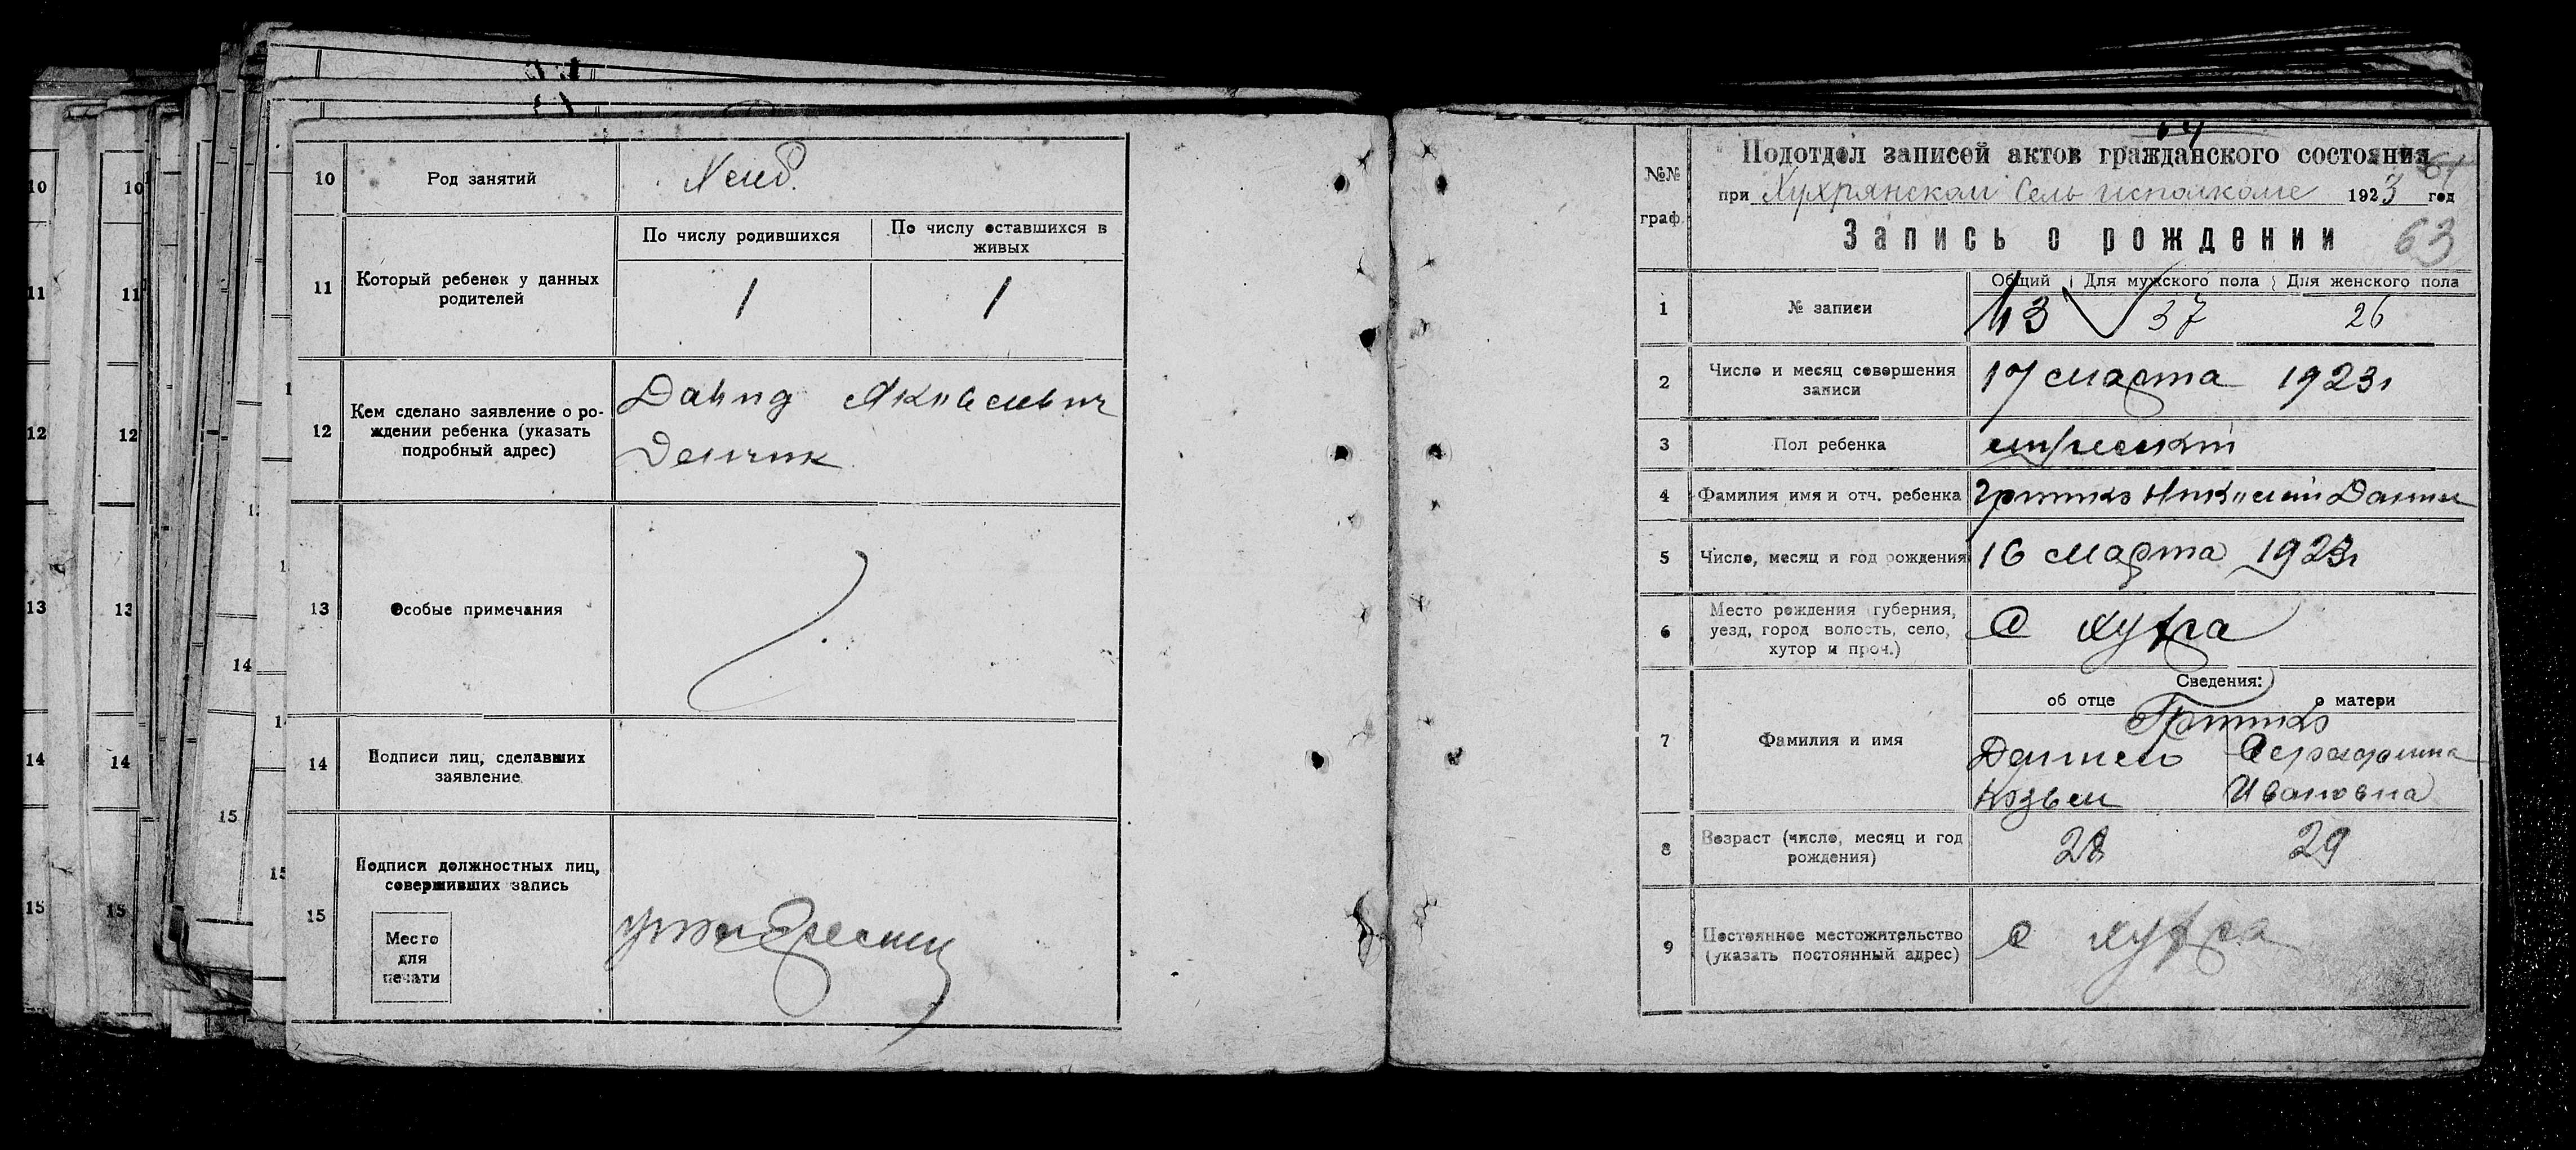 10
Род занятий
Хлеб.
11
Который ребенок у данных
родителей
По числу родившихся
По числу оставшихся в
живых
1
1
12
Кем сделано заявление о ро-
ждении ребенка (указать
подробный адрес)
Давид Яковлевич
13
Особые примечания
14
Подписи лиц, сделавших
заявление
15
Подписи должностных лиц,
совершивших запись
Место
для
печати
№№
граф.
Подотдел записей актов гражданского состояния
при Хухрянском Сельисполкоме 1923 год
Запись о рождении
63
1
№ записи
Общий
Для мужского пола
Для женского пола
37
26
2
Число и месяц совершения
записи
17 марта 1923г
3
Пол ребенка
мужской
4
Фамилия имя и отч. ребенка
Гритко Николай Дании
5
Число, месяц и год рождения
16 марта 1923г
6
Место рождения (губерния,
уезд, город волость, село,
хутор и проч.)
С Хухра
7
Фамилия и имя
Сведения:
об отце
о матери
Гритко
Даниил
Серафима
Козьм
Ивановна
8
Возраст (число, месяц и год
рождения)
28
29
9
Постоянное местожительство
(указать постоянный адрес)
С Хухра
10
11
12
13
14
15
10
11
12
13
14
15
14
15